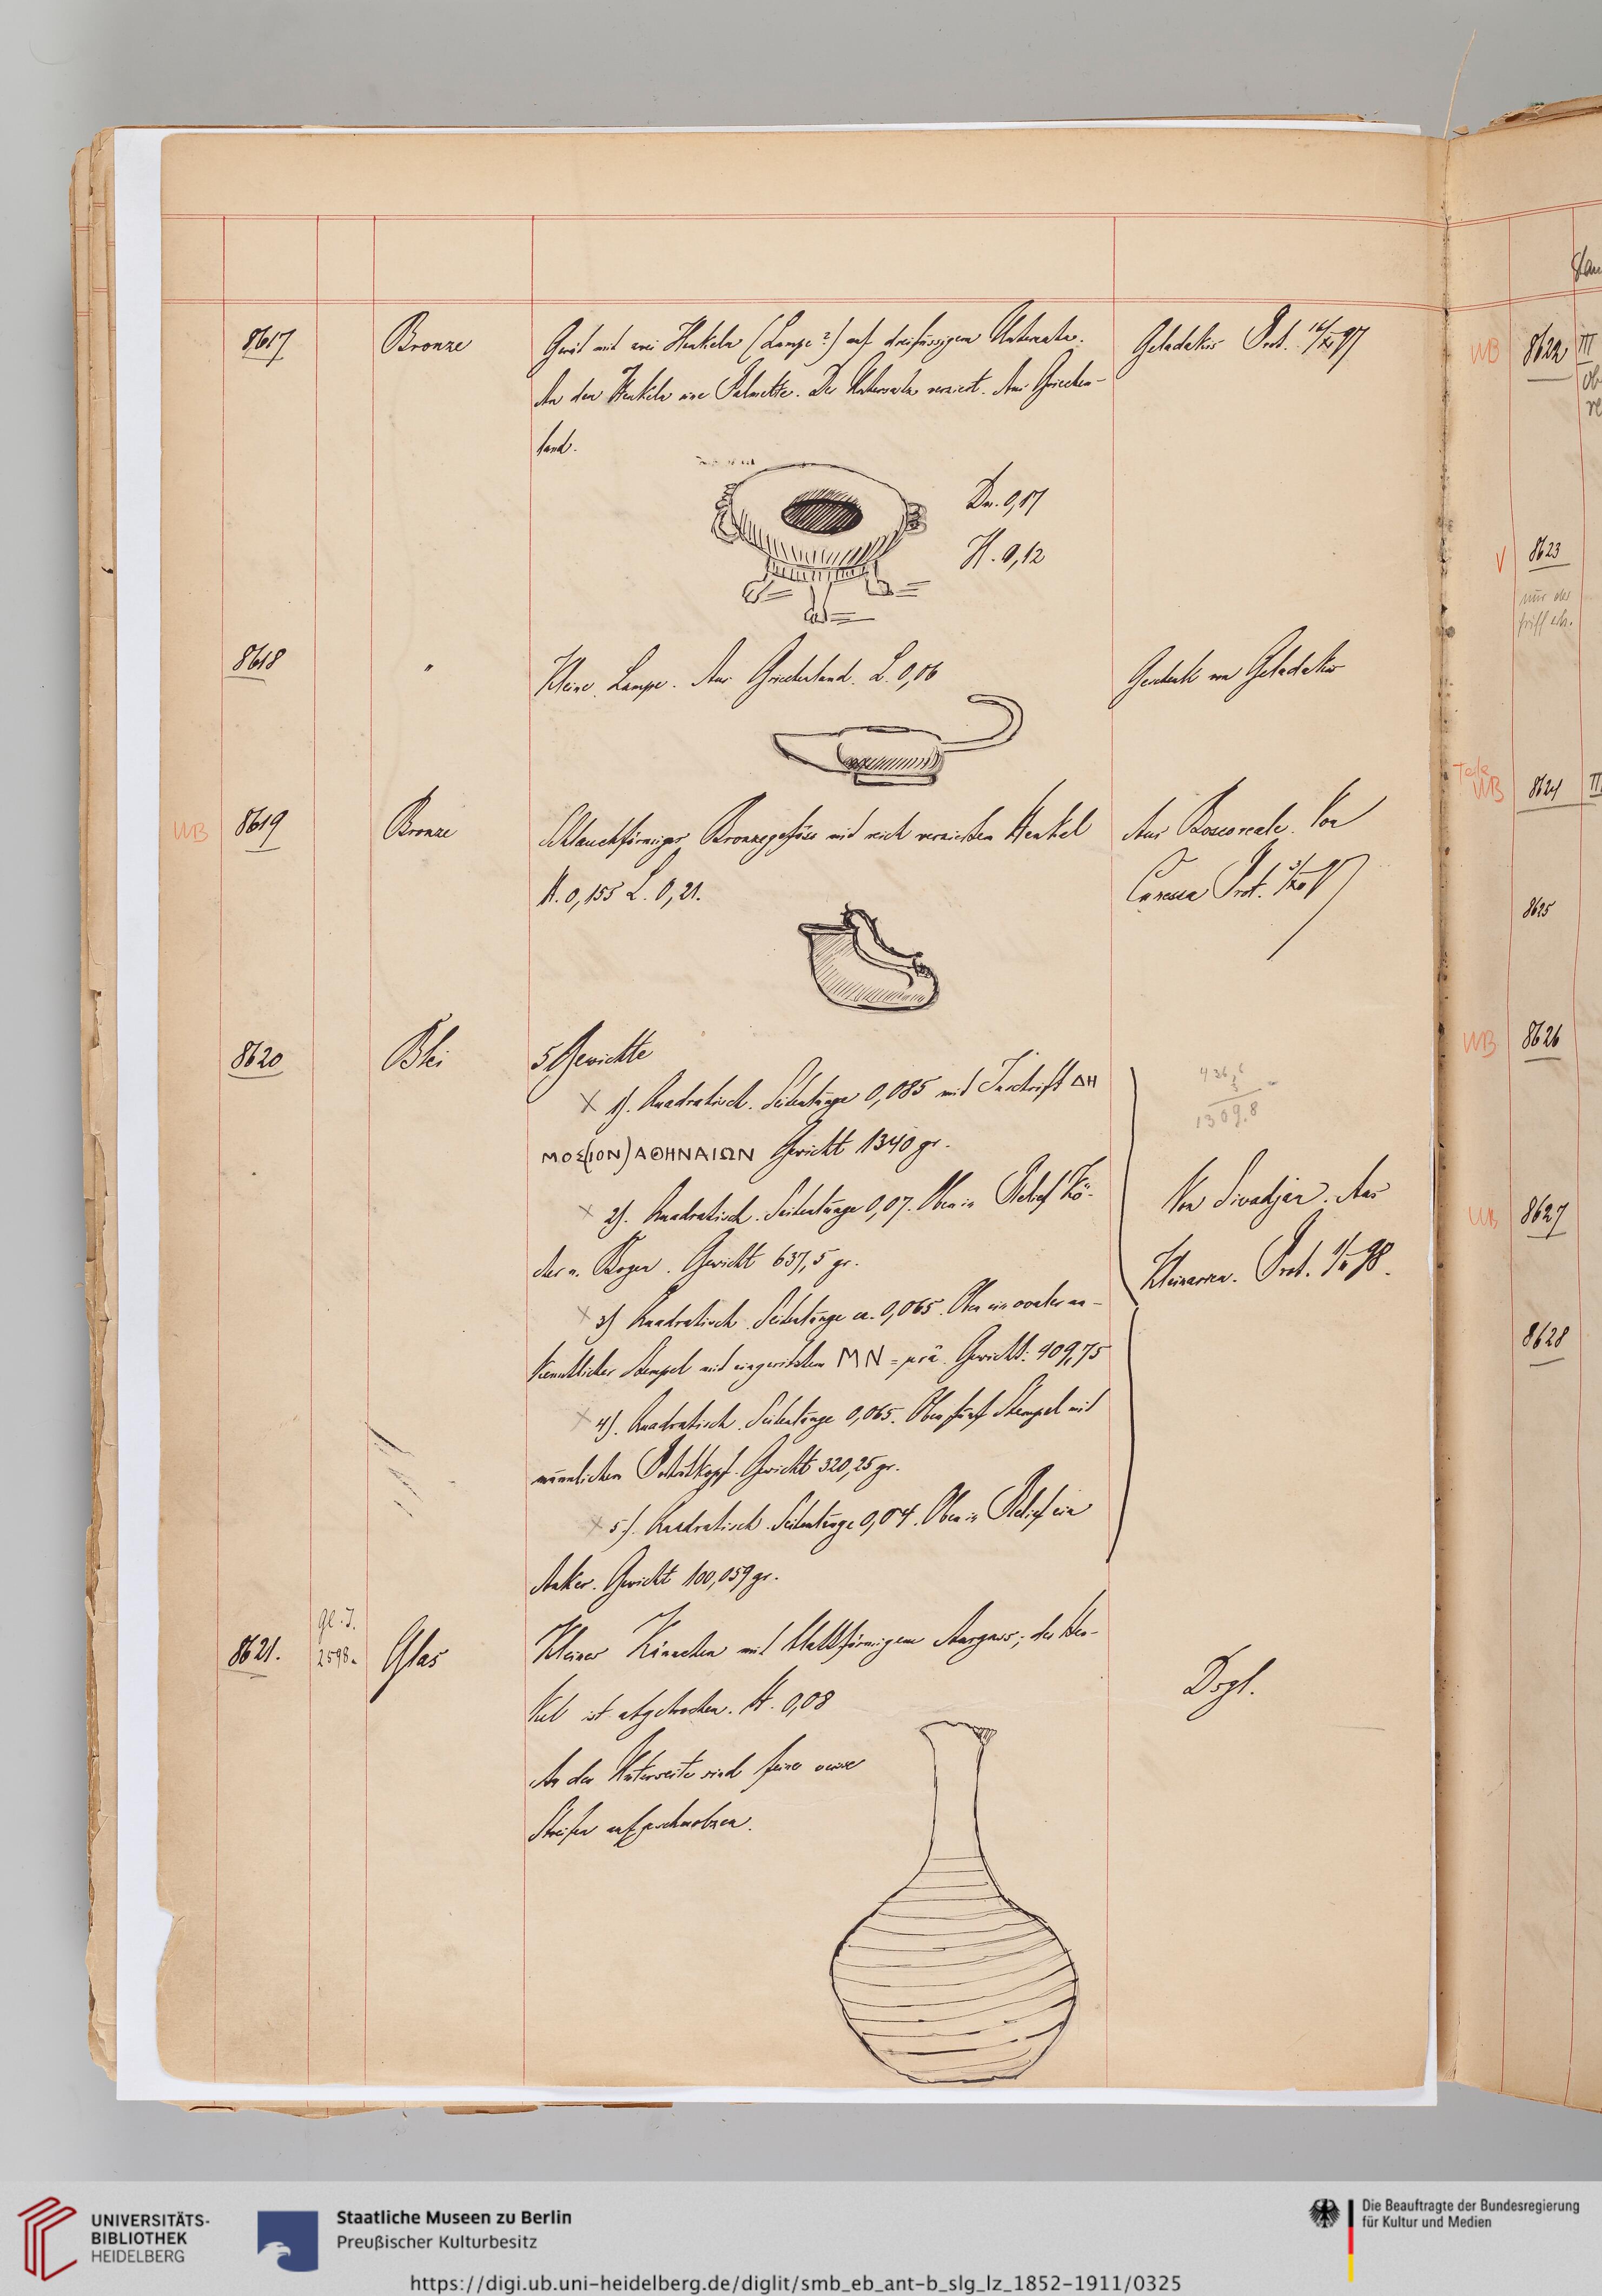 8617 Bronze Gerät mit zwei Henkeln (Lampe?) auf dreifüssigem Untersatz. Geladakis Prot. 16/XI 97
An den Henkeln eine Palmette. Der Untersatz verziert. Aus Griechen-
land.
Dm. 0,17
H. 0,12
8618 " Kleine Lampe. Aus Griechenland. L. 0,06 Geschenk von Geladakis
WB 8619 Bronze Schlauchförmiges Bronzegefäss mit reich verziertem Henkel Aus Boscoreale. Von
H. 0,155 L. 0,21. Canessa Prot.
8620 Blei 5 Gewichte
436,6
3
1309.8
X 1). Quadratisch. Seitenlänge 0,085 mit Inschrift ΔΗ
ΜΟΣ(ΙΟΝ)ΑΘΗΝΑΙΩΝ Gewicht 1340 gr.
X 2). Quadratisch. Seitenlänge 0,07. Oben in Relief Kö-
cher u. Bogen. Gewicht 637,5 gr.
Von Sivadjan. Aus
Kleinasien. Prot. 98.
X 3) Quadratisch. Seitenlänge ca. 0,065. Oben ein ovaler un-
kenntlicher Stempel mit eingeritztem MN = μνᾶ. Gewicht: 409,75
X 4). Quadratisch. Seitenlänge 0,065. Oben fünf Stempel mit
männlichem Porträtkopf. Gewicht 320,25 gr.
X 5). Quadratisch. Seitenlänge 0,04. Oben in Relief ein
Anker. Gewicht 100,059 gr.
8621. Gl. I. 2598. Glas Kleines Kännchen mit blattförmigem Ausguss; der Hen-
kel ist abgebrochen. H. 0,08 Dsgl.
An der Unterseite sind feine weisse
Streifen aufgeschmolzen.
WB 8622 III
V 8623
nur der
Griff
Teile
WB 8624 III
8625
WB 8626
WB 8627
8628
UNIVERSITÄTS-
BIBLIOTHEK
HEIDELBERG
Staatliche Museen zu Berlin
Preußischer Kulturbesitz
Die Beauftragte der Bundesregierung
für Kultur und Medien
https://digi.ub.uni-heidelberg.de/diglit/smb_eb_ant-b_slg_lz_1852-1911/0325